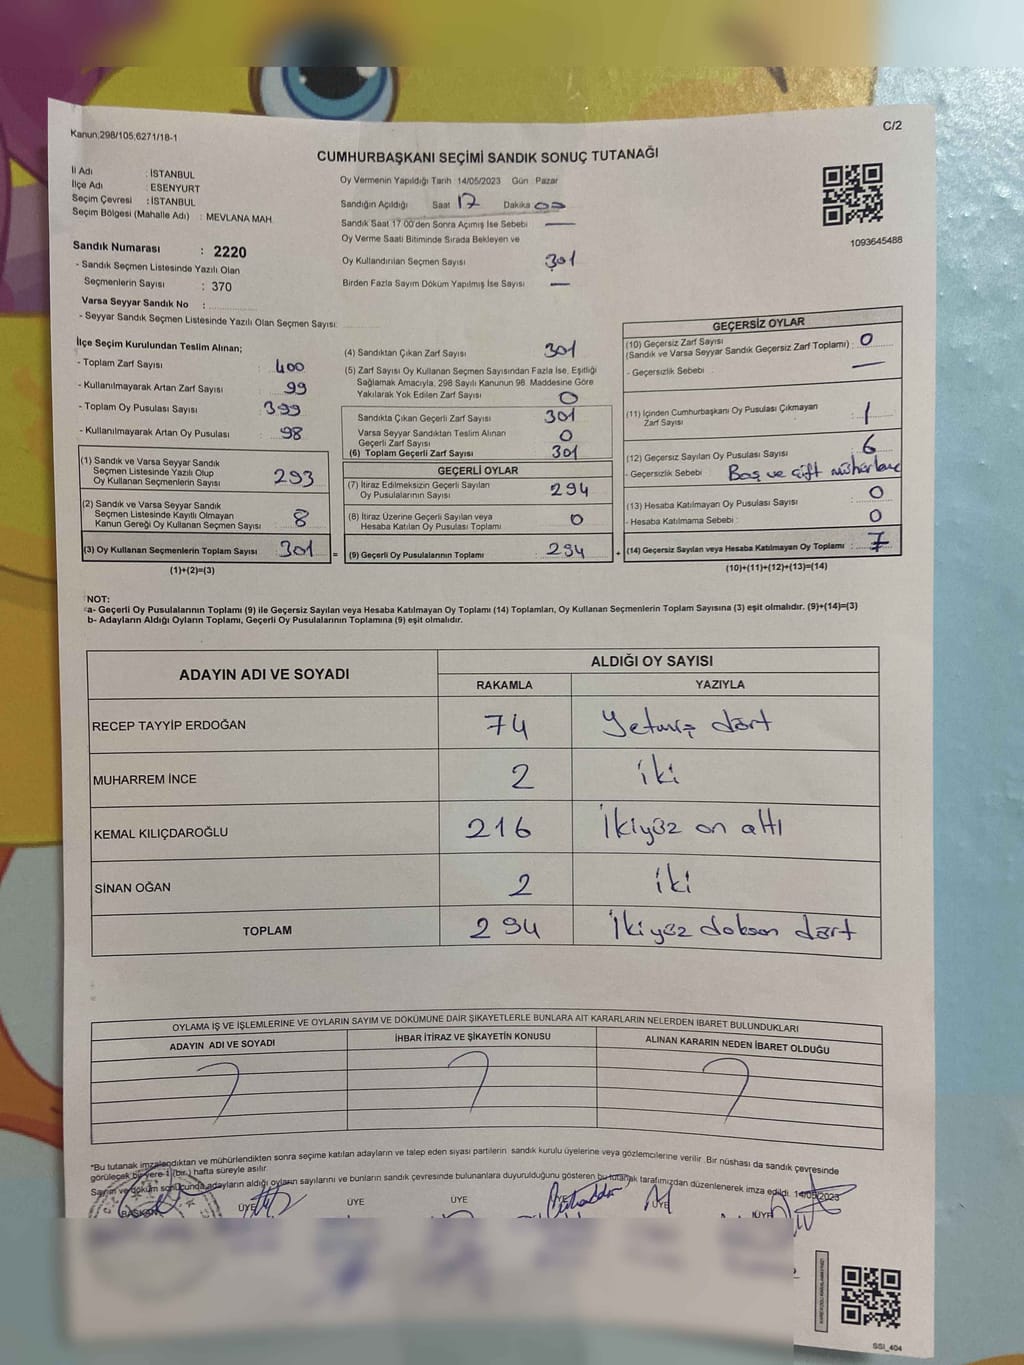 Kanun,298/105,6271/18-1
C/2
CUMHURBAŞKANI SEÇİMİ SANDIK SONUÇ TUTANAĞI
İl Adı : İSTANBUL
İlçe Adı : ESENYURT
Seçim Çevresi : İSTANBUL
Seçim Bölgesi (Mahalle Adı) : MEVLANA MAH.
Sandık Numarası : 2220
- Sandık Seçmen Listesinde Yazılı Olan
Seçmenlerin Sayısı : 370
Varsa Seyyar Sandık No :
- Seyyar Sandık Seçmen Listesinde Yazılı Olan Seçmen Sayısı:
Oy Vermenin Yapıldığı Tarih 14/05/2023 Gün Pazar
Sandığın Açıldığı Saat 17 Dakika 00
Sandık Saat 17 00'den Sonra Açımış İse Sebebi —
Oy Verme Saati Bitiminde Sırada Bekleyen ve
Oy Kullandırılan Seçmen Sayısı 301
Birden Fazla Sayım Döküm Yapılmış İse Sayısı —
1093645488
İlçe Seçim Kurulundan Teslim Alınan;
- Toplam Zarf Sayısı : 400
- Kullanılmayarak Artan Zarf Sayısı : 99
- Toplam Oy Pusulası Sayısı : 399
- Kullanılmayarak Artan Oy Pusulası : 98
(1) Sandık ve Varsa Seyyar Sandık
Seçmen Listesinde Yazılı Olup
Oy Kullanan Seçmenlerin Sayısı 293
(2) Sandık ve Varsa Seyyar Sandık
Seçmen Listesinde Kayıtlı Olmayan
Kanun Gereği Oy Kullanan Seçmen Sayısı 8
(3) Oy Kullanan Seçmenlerin Toplam Sayısı 301 =
(1)+(2)=(3)
(4) Sandıktan Çıkan Zarf Sayısı 301
(5) Zarf Sayısı Oy Kullanan Seçmen Sayısından Fazla İse, Eşitliği
Sağlamak Amacıyla, 298 Sayılı Kanunun 98. Maddesine Göre
Yakılarak Yok Edilen Zarf Sayısı 0
Sandıkta Çıkan Geçerli Zarf Sayısı 301
Varsa Seyyar Sandıktan Teslim Alınan
Geçerli Zarf Sayısı 0
(6) Toplam Geçerli Zarf Sayısı 301
GEÇERLİ OYLAR
(7) İtiraz Edilmeksizin Geçerli Sayılan
Oy Pusulalarının Sayısı 294
(8) İtiraz Üzerine Geçerli Sayılan veya
Hesaba Katılan Oy Pusulası Toplamı 0
(9) Geçerli Oy Pusulalarının Toplamı 294 +
GEÇERSİZ OYLAR
(10) Geçersiz Zarf Sayısı
(Sandık ve Varsa Seyyar Sandık Geçersiz Zarf Toplamı) : 0
- Geçersizlik Sebebi : —
(11) İçinden Cumhurbaşkanı Oy Pusulası Çıkmayan
Zarf Sayısı 1
(12) Geçersiz Sayılan Oy Pusulası Sayısı 6
- Geçersizlik Sebebi : Boş ve çift mühürlene
(13) Hesaba Katılmayan Oy Pusulası Sayısı 0
- Hesaba Katılmama Sebebi : 0
(14) Geçersiz Sayılan veya Hesaba Katılmayan Oy Toplamı : 7
(10)+(11)+(12)+(13)=(14)
NOT:
a- Geçerli Oy Pusulalarının Toplamı (9) ile Geçersiz Sayılan veya Hesaba Katılmayan Oy Toplamı (14) Toplamları, Oy Kullanan Seçmenlerin Toplam Sayısına (3) eşit olmalıdır. (9)+(14)=(3)
b- Adayların Aldığı Oyların Toplamı, Geçerli Oy Pusulalarının Toplamına (9) eşit olmalıdır.
ADAYIN ADI VE SOYADI ALDIĞI OY SAYISI
RAKAMLA YAZIYLA
RECEP TAYYİP ERDOĞAN 74 Yetmiş dört
MUHARREM İNCE 2 iki
KEMAL KILIÇDAROĞLU 216 İkiyüz on altı
SİNAN OĞAN 2 iki
TOPLAM 294 İkiyüz doksan dört
OYLAMA İŞ VE İŞLEMLERİNE VE OYLARIN SAYIM VE DÖKÜMÜNE DAİR ŞİKAYETLERLE BUNLARA AİT KARARLARIN NELERDEN İBARET BULUNDUKLARI
ADAYIN ADI VE SOYADI İHBAR İTİRAZ VE ŞİKAYETİN KONUSU ALINAN KARARIN NEDEN İBARET OLDUĞU
"Bu tutanak imzalandıktan ve mühürlendikten sonra seçime katılan adayların ve talep eden siyası partilerin. sandık kurulu üyelerine veya gözlemcilerine verilir .Bir nüshası da sandık çevresinde
görülecek bir yere 1 (bir ) hafta süreyle asılır.
Sayım ve döküm sonucunda adayların aldığı oyların sayılarını ve bunların sandık çevresinde bulunanlara duyurulduğunu gösteren bu tutanak tarafımızdan düzenlenerek imza edildi. 14/05/2023
BAŞKAN ÜYE ÜYE ÜYE ÜYE ÜYE
SSI_404